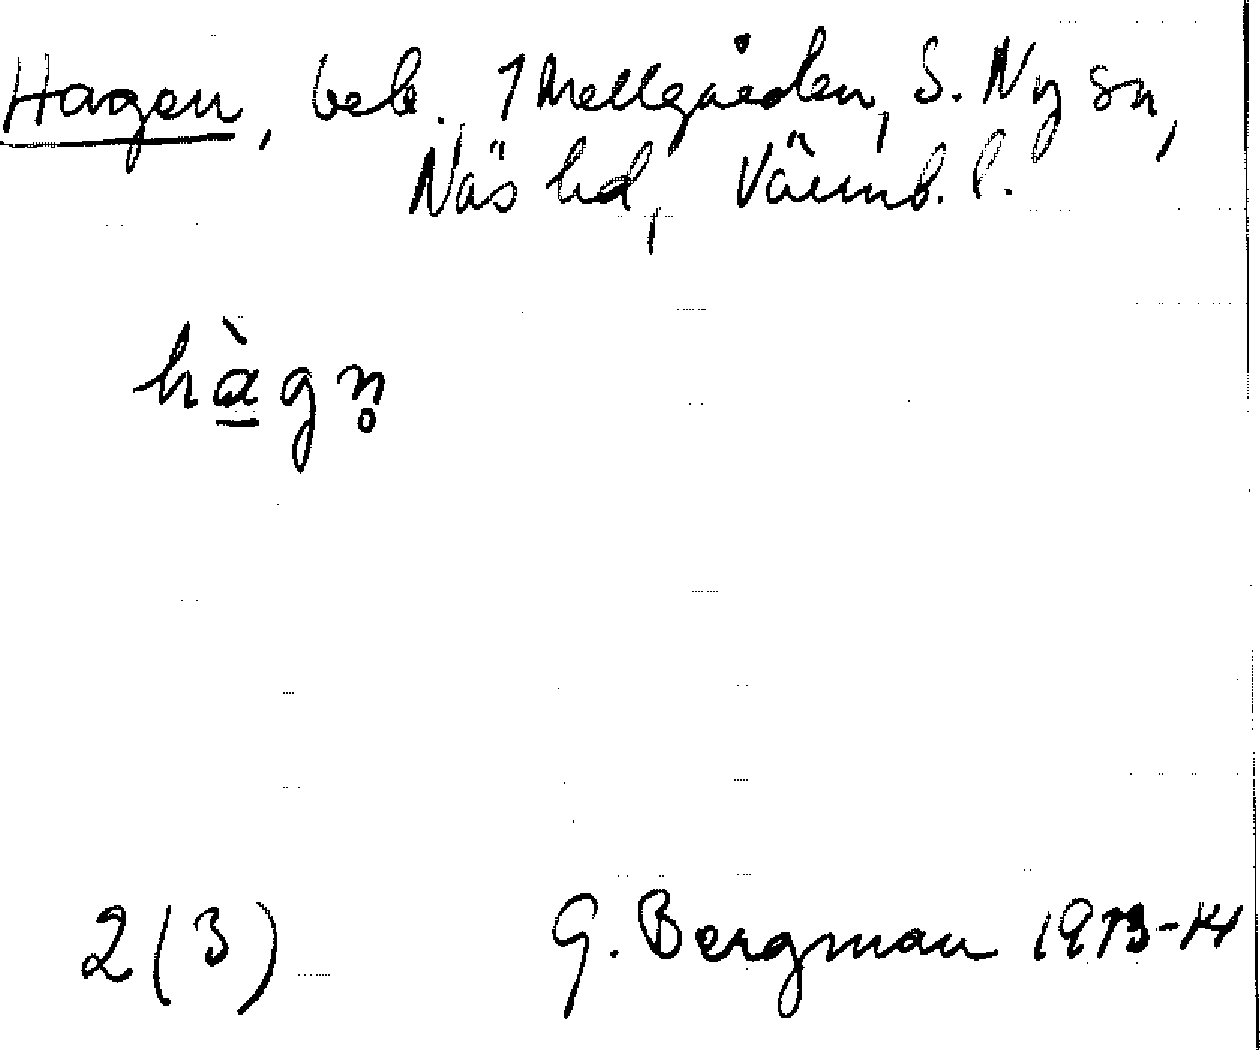 Hagen, beb. 1 Mellgården, S. Ny sn,
Näs hd, Värmb. l.
hàgn̥
2(3)
G. Bergman 1973-74